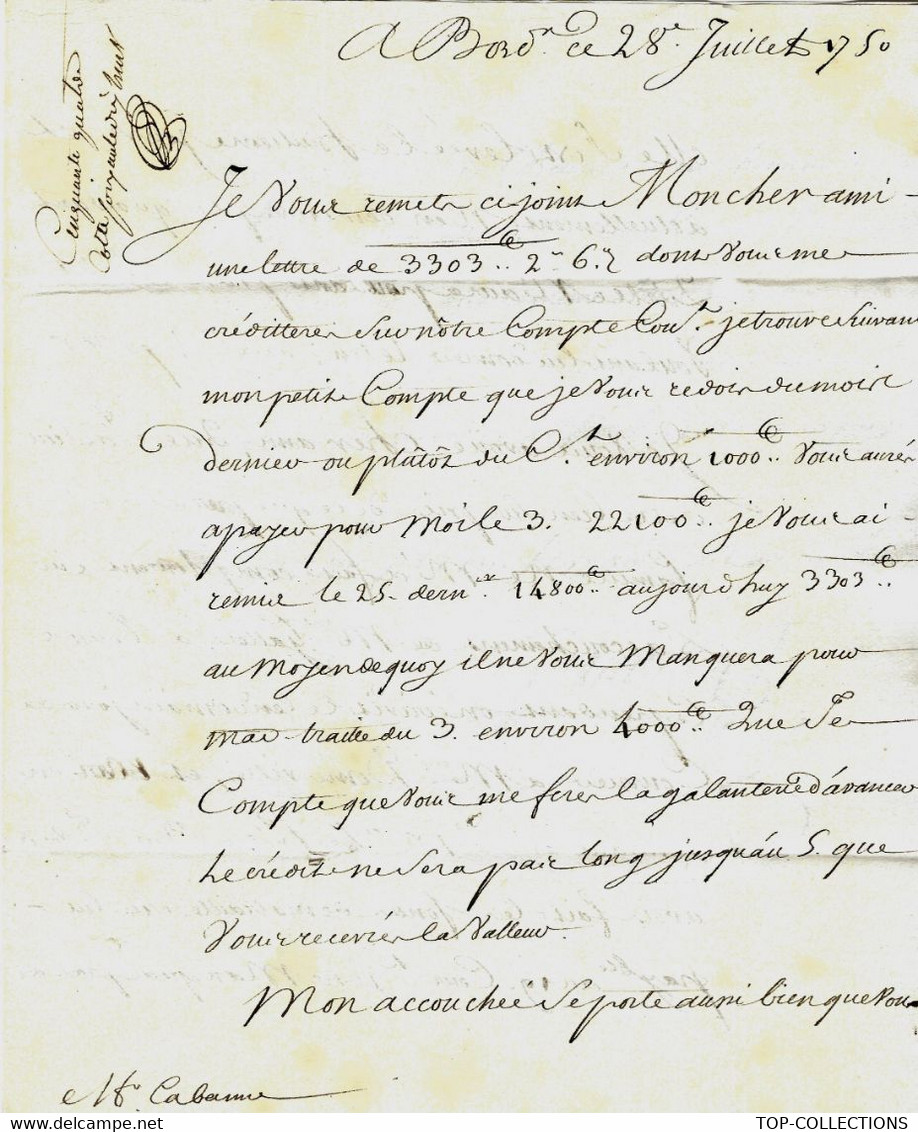 A Bord.x ce 28e. Juillet 1750
Cinquante quatre
Cotte soixante dix huit
Je Vous remets ci joint Mon cher ami
une lettre de 3303tt.. 2s 6.d dont Vous me
créditteres sur nôtre Compte Cou.t je trouve suivant
mon petit Compte que je Vous redois du mois
dernier ou plûtôt du C.t environ 1000tt.. Vous aurés
a payer pour Moi le 3. 22100tt.. je Vous ai
remis le 25. dern.er 14800tt.. aujourd'huy 3303tt..
au Moyen de quoy il ne Vous Manquera pour
ma traitte du 3. environ 4000tt.. Que Je
Compte que Vous me feres la galanterie d'avancer
Le crédit ne sera pas long jusqu'au 5. que
Vous recevrés la Valleur.
Mon accouchée se porte aussi bien que Vou
Mr. Cabanne
TOP-COLLECTIONS